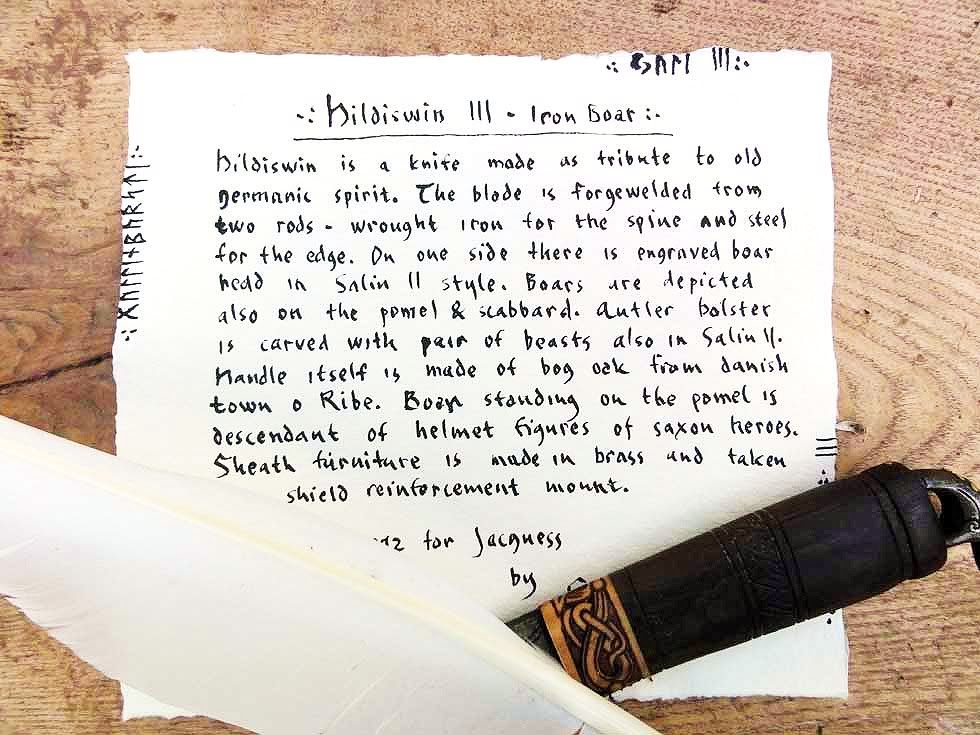 .: Hildiswin III - Iron Boar :.
Hildiswin is a knife made as tribute to old
germanic spirit. The blade is forgewelded from
two rods - wrought iron for the spine and steel
for the edge. On one side there is engraved boar
head in Salin II style. Boars are depicted
also on the pomel & scabbard. Antler bolster
is carved with pair of beasts also in Salin II.
Handle itself is made of bog oak from danish
town o Ribe. Boar standing on the pomel is
descendant of helmet figures of saxon heroes.
Sheath furniture is made in brass and taken
shield reinforcement mount.
for Jacquess
by